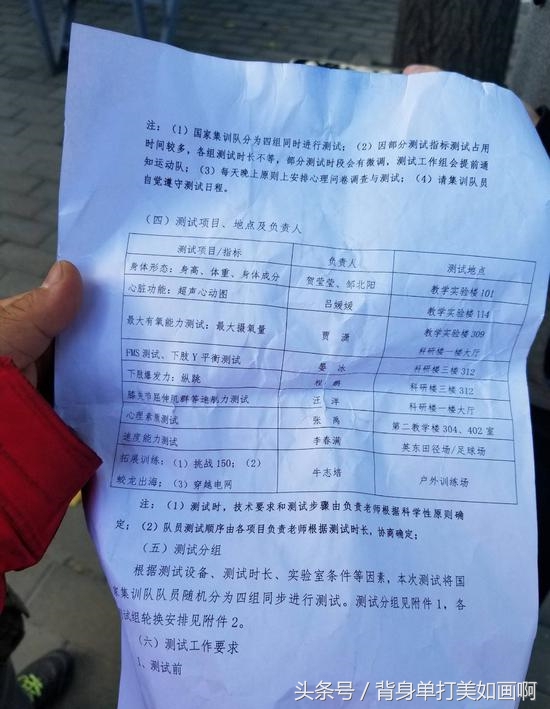 注：（1）国家集训队分为四组同时进行测试；（2）因部分测试指标测试占用
时间较多，各组测试时长不等，部分测试时段会有微调，测试工作组会提前通
知运动队；（3）每天晚上原则上安排心理问卷调查与测试；（4）请集训队员
自觉遵守测试日程。
（四）测试项目、地点及负责人
测试项目/指标 负责人 测试地点
身体形态：身高、体重、身体成分 贺莹莹、邹北阳 教学实验楼101
心脏功能：超声心动图 吕媛媛 教学实验楼114
最大有氧能力测试：最大摄氧量 贾潇 教学实验楼309
科研楼一楼大厅
FMS测试、下肢Y平衡测试 晏冰 科研楼三楼312
下肢爆发力：纵跳 程鹏 科研楼三楼312
膝关节屈伸肌群等速肌力测试 汪洋 科研楼一楼大厅
心理素质测试 张禹 第二教学楼304、402室
速度能力测试 李春满 英东田径场/足球场
拓展训练：（1）挑战150；（2）
蛟龙出海；（3）穿越电网 牛志培 户外训练场
注：（1）测试时，技术要求和测试步骤由负责老师根据科学性原则确
定；（2）队员测试顺序由各项目负责老师根据测试时长，协商确定；
（五）测试分组
根据测试设备、测试时长、实验室条件等因素，本次测试将国
家集训队队员随机分为四组同步进行测试。测试分组见附件1，各
测试组轮换安排见附件2。
（六）测试工作要求
1、测试前
头条号 / 背身单打美如画啊